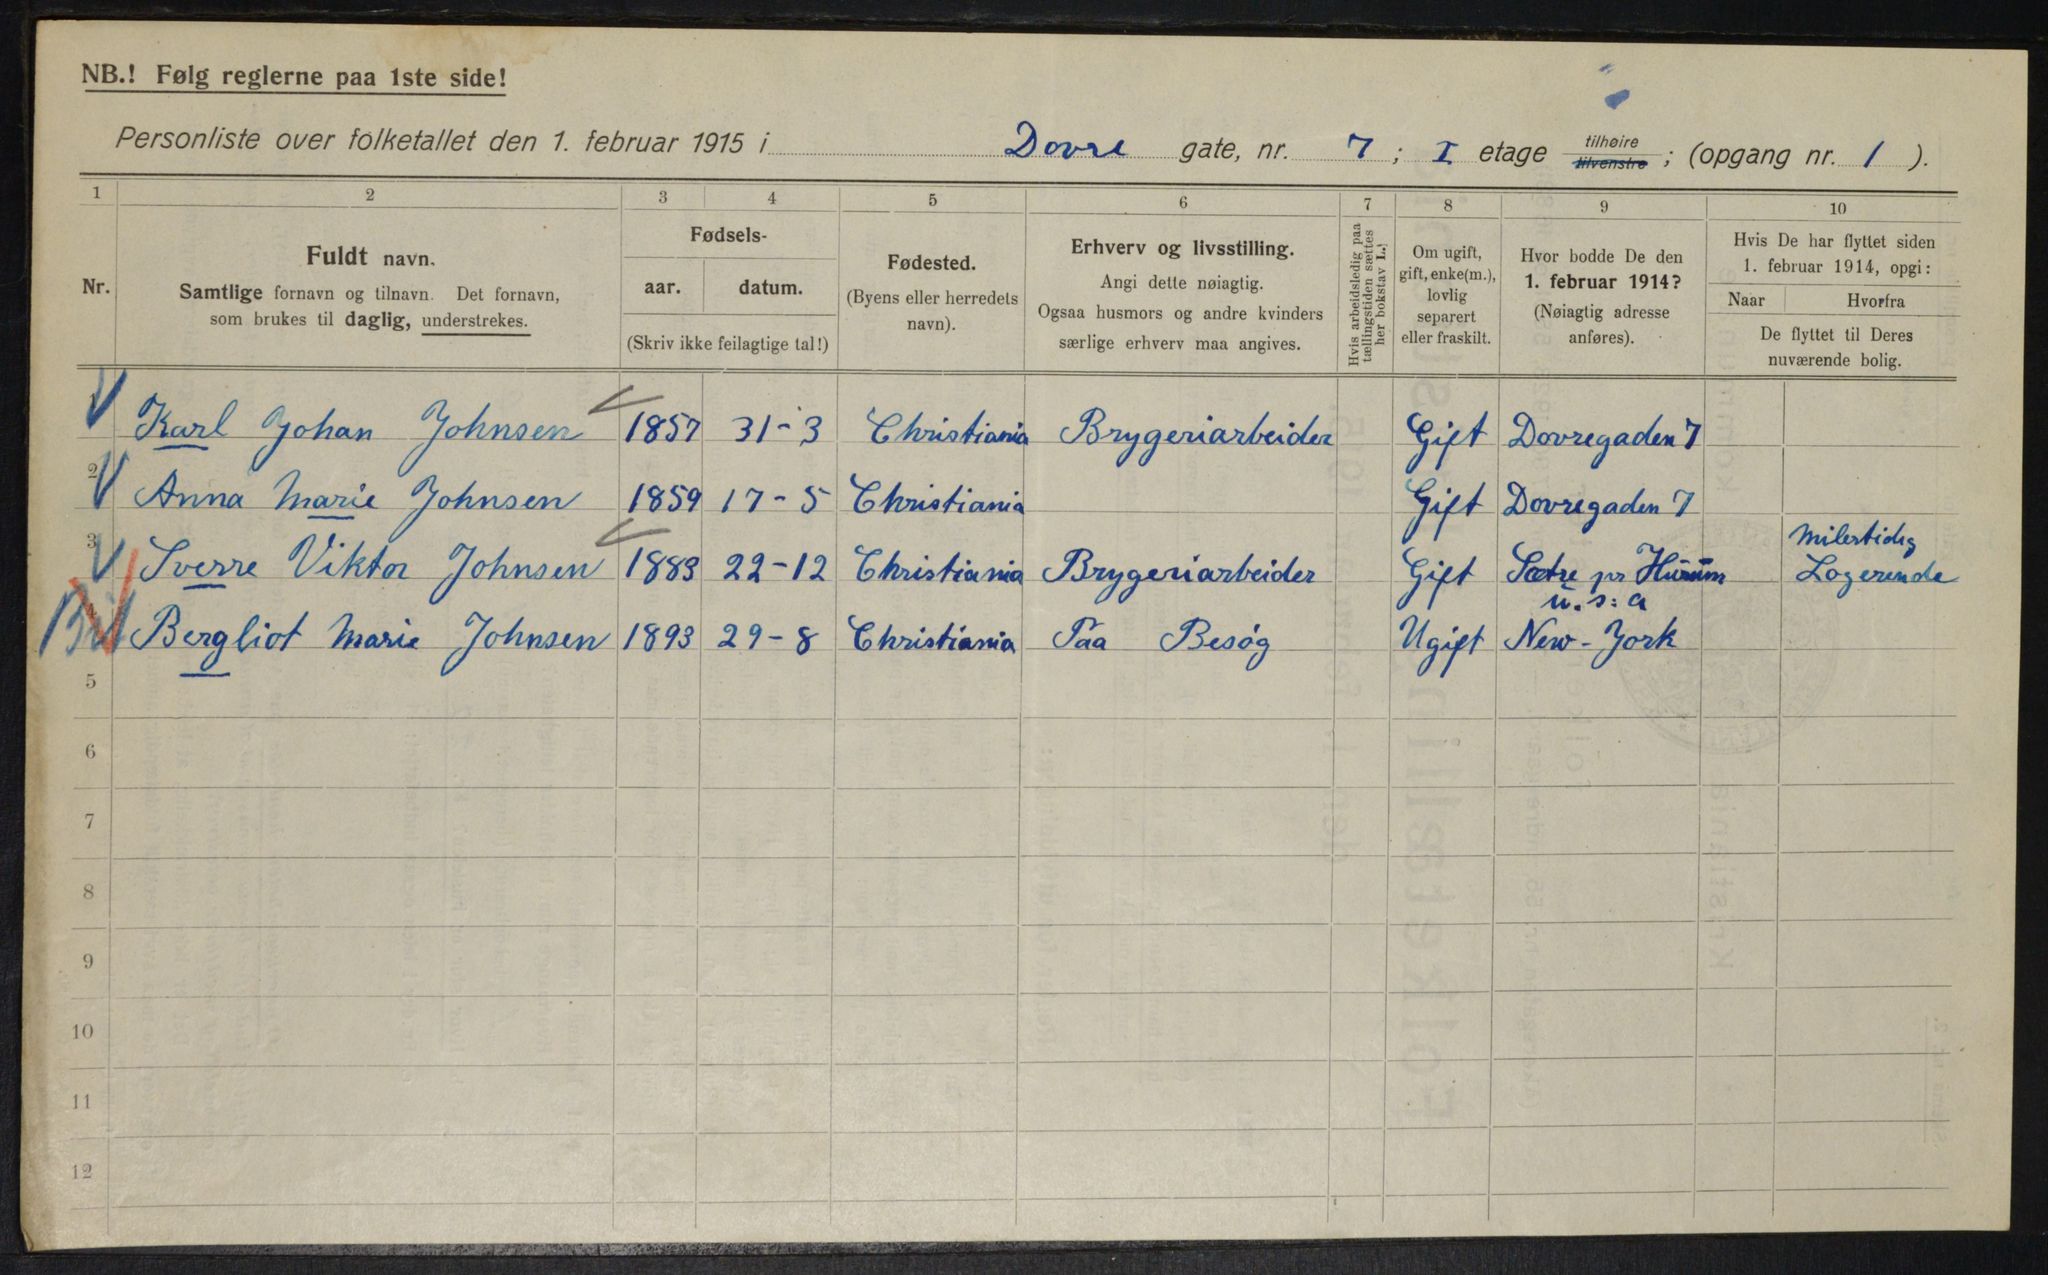 NB.! Følg reglerne paa 1ste side!
Personliste over folketallet den 1. februar 1915 i Dovre gate, nr. 7; I etage tilhøire tilvenstre; (opgang nr. 1).
1 2 3 4 5 6 7 8 9 10
Nr.
Fuldt navn.
Samtlige fornavn og tilnavn. Det fornavn,
som brukes til daglig, understrekes.
Fødsels-
aar. datum.
(Skriv ikke feilagtige tal!)
Fødested.
(Byens eller herredets
navn).
Erhverv og livsstilling.
Angi dette nøiagtig.
Ogsaa husmors og andre kvinders
særlige erhverv maa angives.
Hvis arbeidsledig paa
tællingstiden sættes
her bokstav L.!
Om ugift,
gift, enke(m.),
lovlig
separert
eller fraskilt.
Hvor bodde De den
1. februar 1914?
(Nøiagtig adresse
anføres).
Hvis De har flyttet siden
1. februar 1914, opgi:
Naar Hvorfra
De flyttet til Deres
nuværende bolig.
Karl Johan Johnsen 1857 31-3 Christiania Brygeriarbeider Gift Dovregaden 7
2 Anna Marie Johnsen 1859 17-5 Christiania Gift Dovregaden 7
3 Sverre Viktor Johnsen 1883 22-12 Christiania Brygeriarbeider Gift Sætre pr Hurum Milertidig
Logerende
u.s:a
4 Bergliot Marie Johnsen 1893 29-8 Christiania Paa Besøg Ugift New-York
5
6
7
8
9
10
11
12